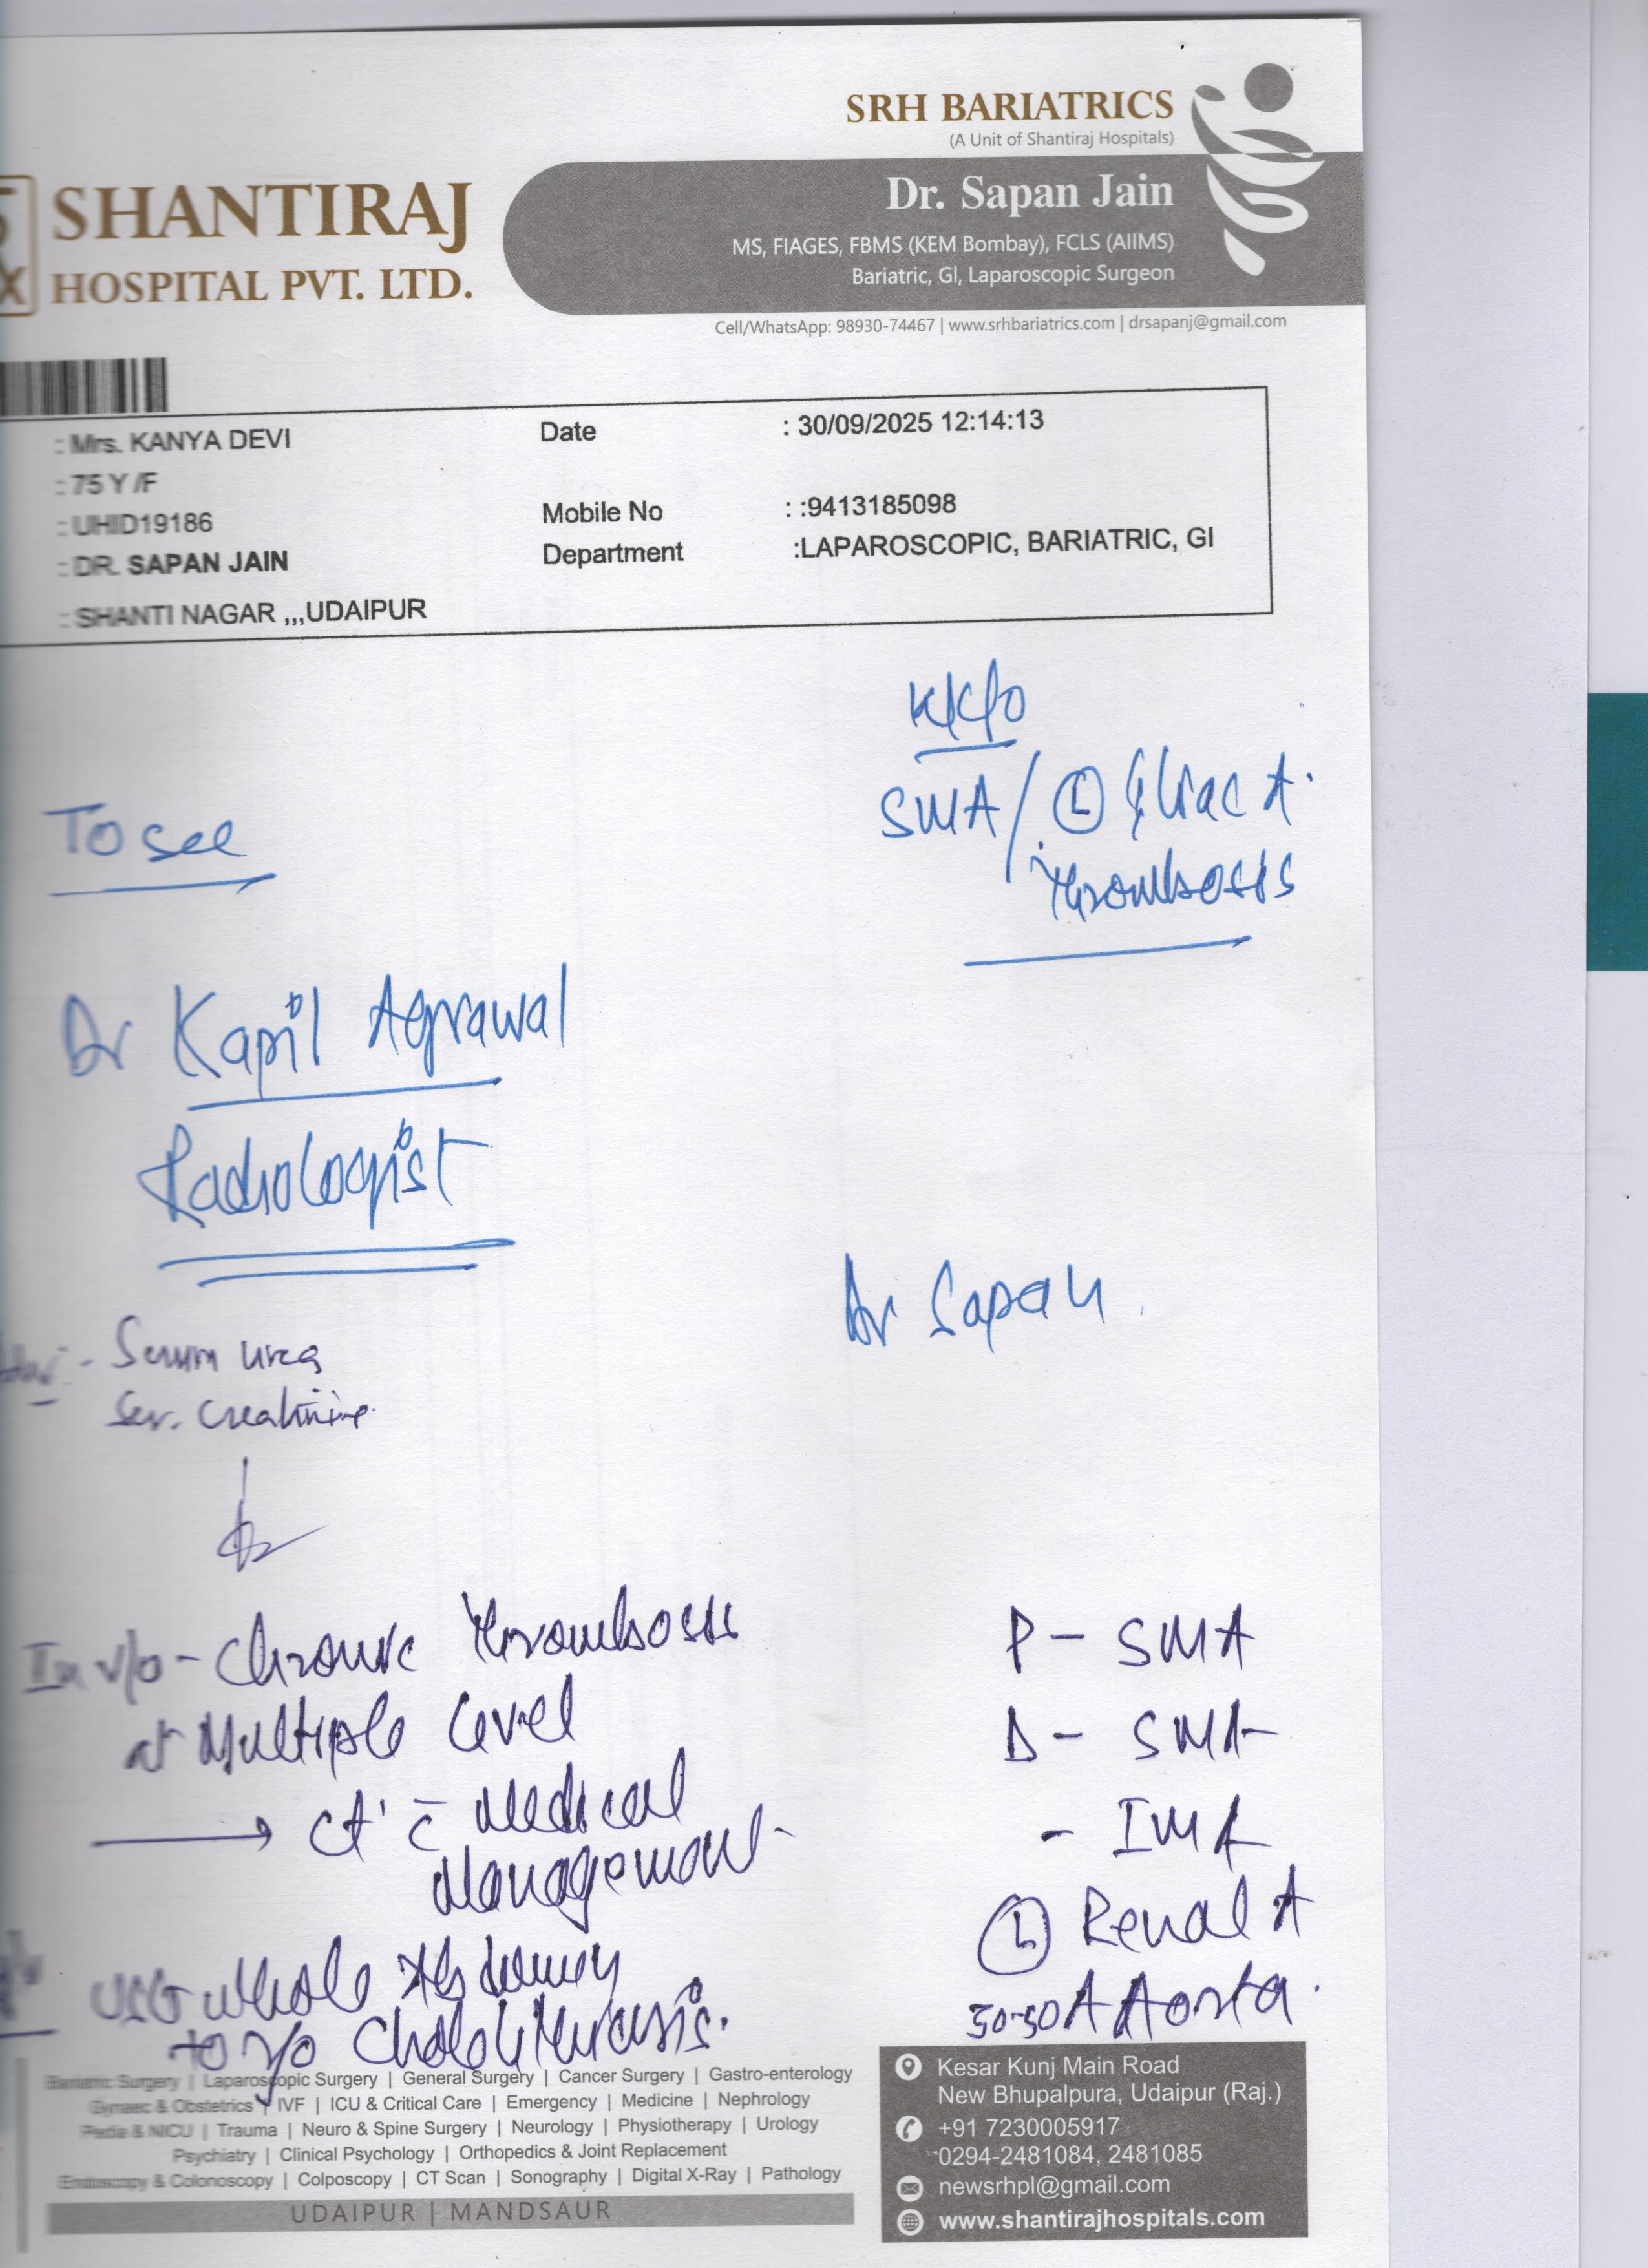 SRH BARIATRICS
(A Unit of Shantiraj Hospitals)
SHANTIRAJ
HOSPITAL PVT. LTD.
Dr. Sapan Jain
MS, FIAGES, FBMS (KEM Bombay), FCLS (AIIMS)
Bariatric, GI, Laparoscopic Surgeon
Cell/WhatsApp: 98930-74467 | www.srhbariatrics.com | drsapanj@gmail.com
: Mrs. KANYA DEVI Date : 30/09/2025 12:14:13
: 75 Y /F
: UHID19186 Mobile No : :9413185098
: DR. SAPAN JAIN Department :LAPAROSCOPIC, BARIATRIC, GI
: SHANTI NAGAR ,,,UDAIPUR
K/C/O
SMA / (L) Iliac A.
Thrombosis
To see
Dr Kapil Agrawal
Radiologist
Dr Sapan
Serum urea
Ser. Creatinine
In v/o - Chronic Thrombosis
at Multiple level
→ Ct' c̄ Medical
Management
USG whole Abdomen
to r/o Cholelithiasis.
P - SMA
D - SMA
- IMA
(L) Renal A
50-50 A Aorta.
Bariatric Surgery | Laparoscopic Surgery | General Surgery | Cancer Surgery | Gastro-enterology
Gynaec & Obstetrics | IVF | ICU & Critical Care | Emergency | Medicine | Nephrology
Pedia & NICU | Trauma | Neuro & Spine Surgery | Neurology | Physiotherapy | Urology
Psychiatry | Clinical Psychology | Orthopedics & Joint Replacement
Endoscopy & Colonoscopy | Colposcopy | CT Scan | Sonography | Digital X-Ray | Pathology
UDAIPUR | MANDSAUR
Kesar Kunj Main Road
New Bhupalpura, Udaipur (Raj.)
+91 7230005917
0294-2481084, 2481085
newsrhpl@gmail.com
www.shantirajhospitals.com